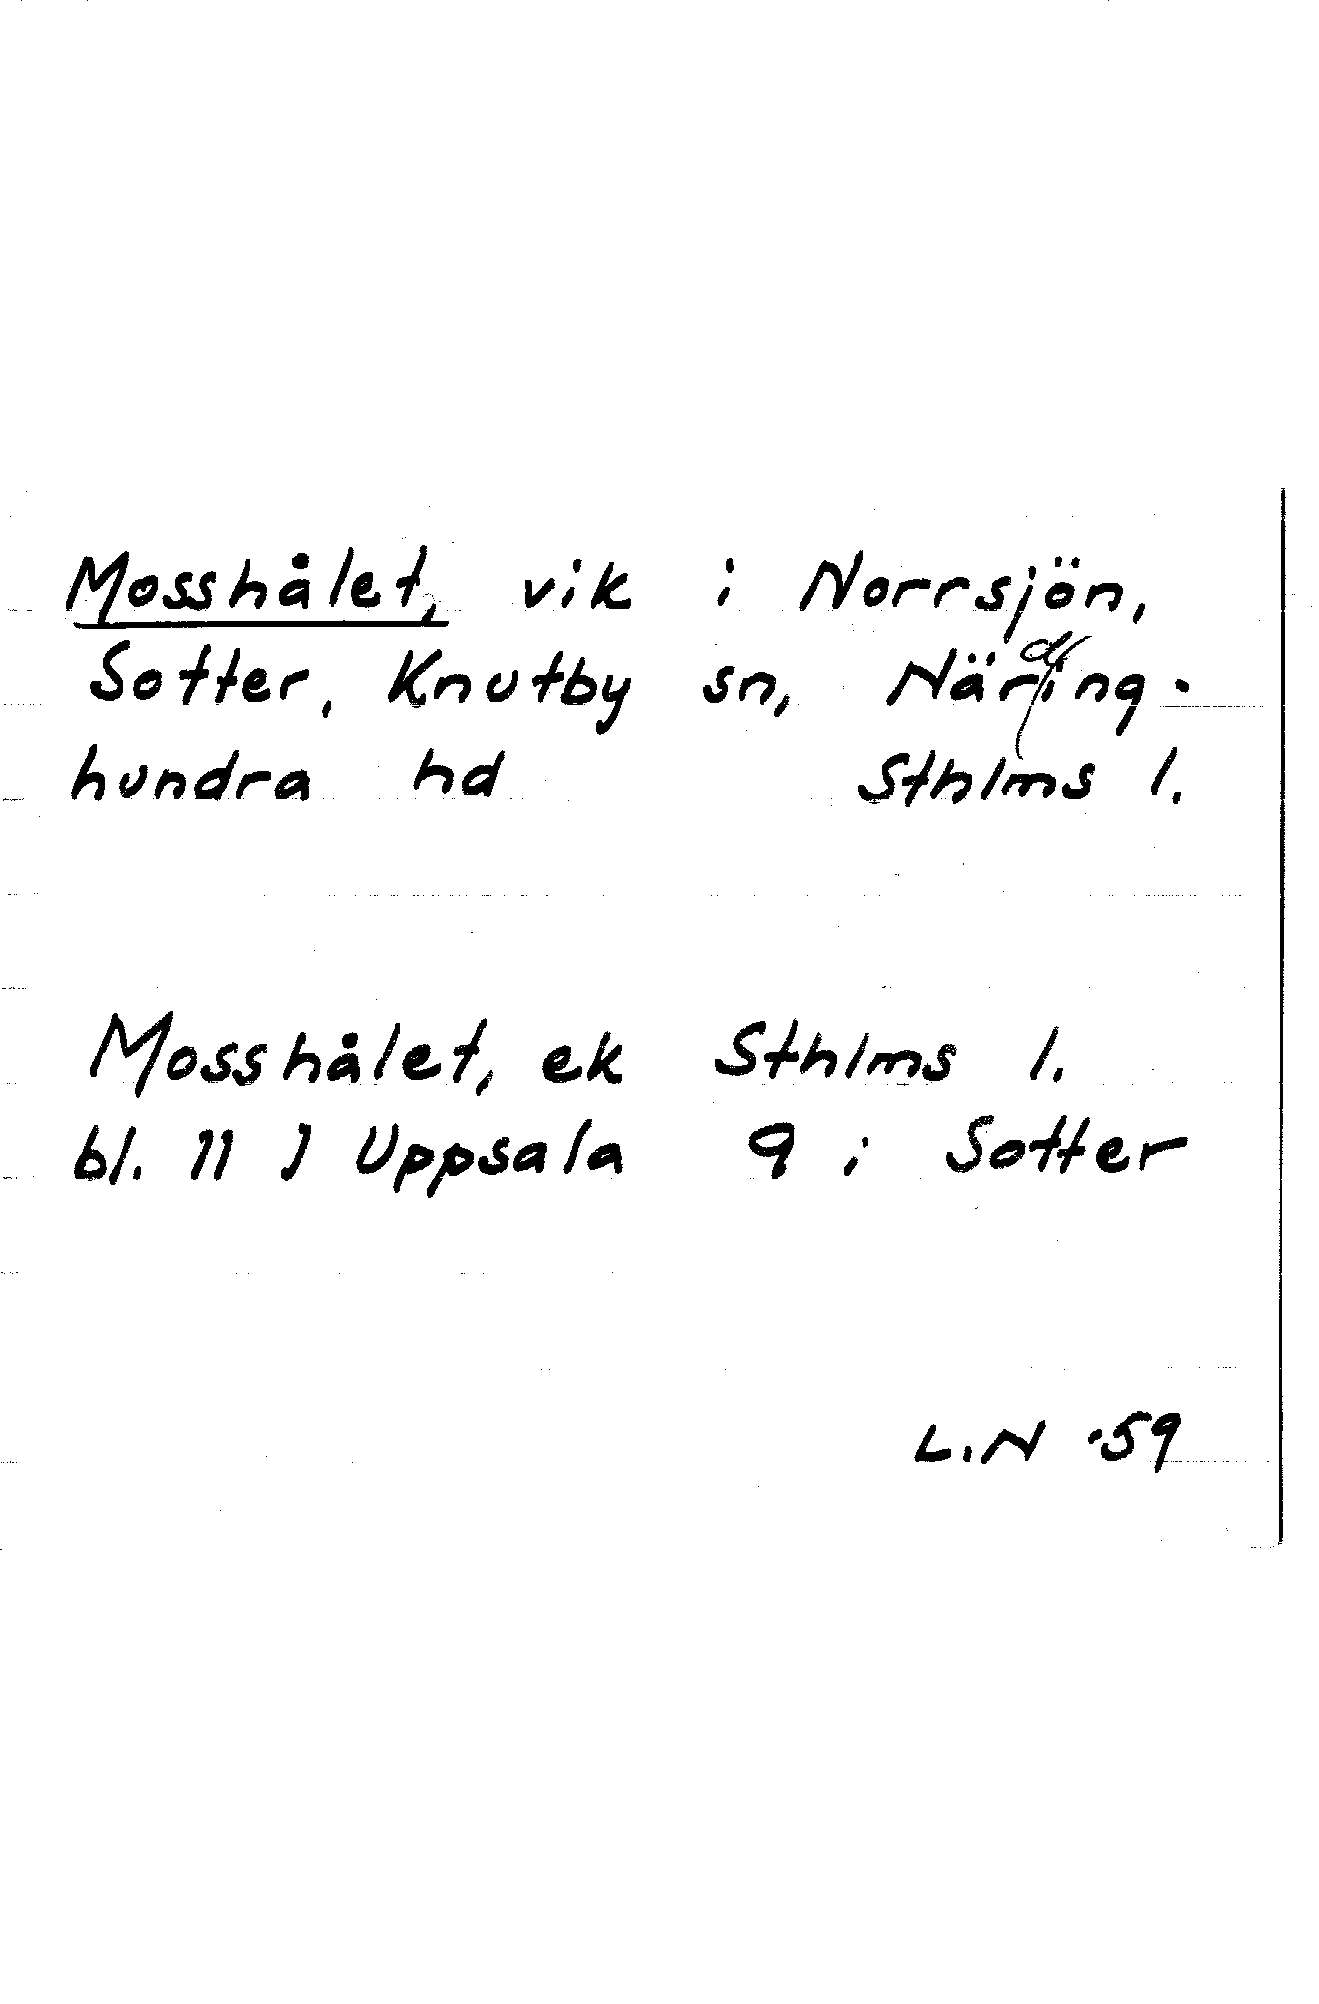 Mosshålet, vik i Norrsjön,
Sotter, Knutby sn, Närding-
hundra hd Sthlms l.
Mosshålet, ek Sthlms l.
bl. 11 J Uppsala 9 i Sotter
L.N -59